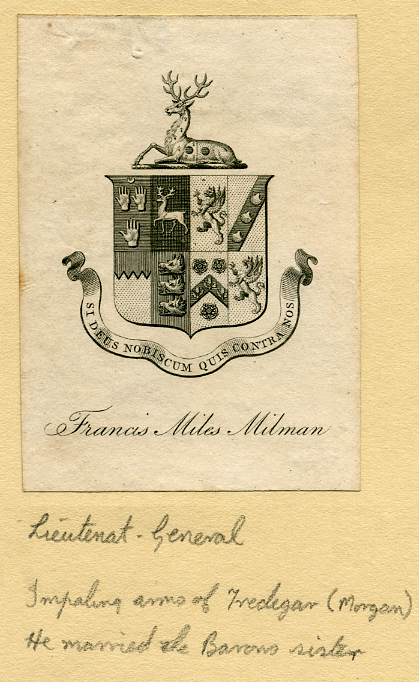 SI DEUS NOBISCUM QUIS CONTRA NOS
Francis Miles Milman
Lieutenat - General
Impaling arms of Tredegar (Morgan)
He married the Barons sister